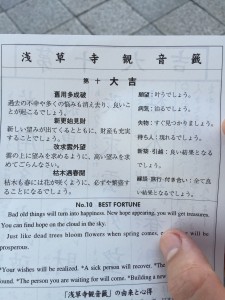 浅草寺観音籤
第十 大吉
舊用多成破
過去の不幸や多くの悩みも消え去り、良いこ
とが起こるでしょう。
新更始見財
新しい望みが出てくるとともに、財産も充実
することでしょう。
改求雲外望
雲の上に望みを求めるように、高い望みを求
めてごらんなさい。
枯木遇春開
枯木も春には花が咲くように、必ずや繁盛す
ることになるでしょう。
願望：叶うでしょう。
病気：治るでしょう。
失物：すぐ見つかりましょう。
待ち人：現れるでしょう。
新築・引越：良い結果となる
でしょう。
縁談・旅行・付き合い：全て良
い結果となるでしょう。
No.10 BEST FORTUNE
Bad old things will turn into happiness. New hope appearing, you will get treasures.
You can find hope on the cloud in the sky.
Just like dead trees bloom flowers when spring comes, will be
prosperous.
*Your wishes will be realized. *A sick person will recover. *The
found. *The person you are waiting for will come. *Building a new
「浅草寺観音籤」の由来と心得